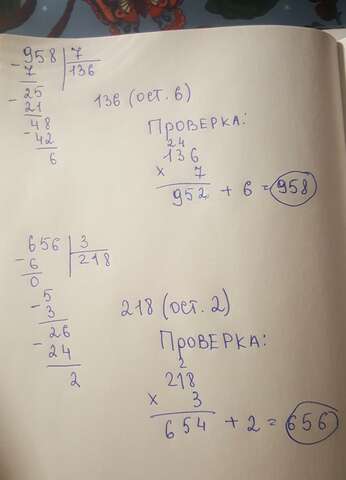 -958 | 7
7 | 136
-25
21
-48
42
6
136 (ост. 6)
Проверка:
24
136
x 7
952 + 6 = 958
-656 | 3
6 | 218
0
-5
3
-26
24
2
218 (ост. 2)
Проверка:
2
218
x 3
654 + 2 = 656